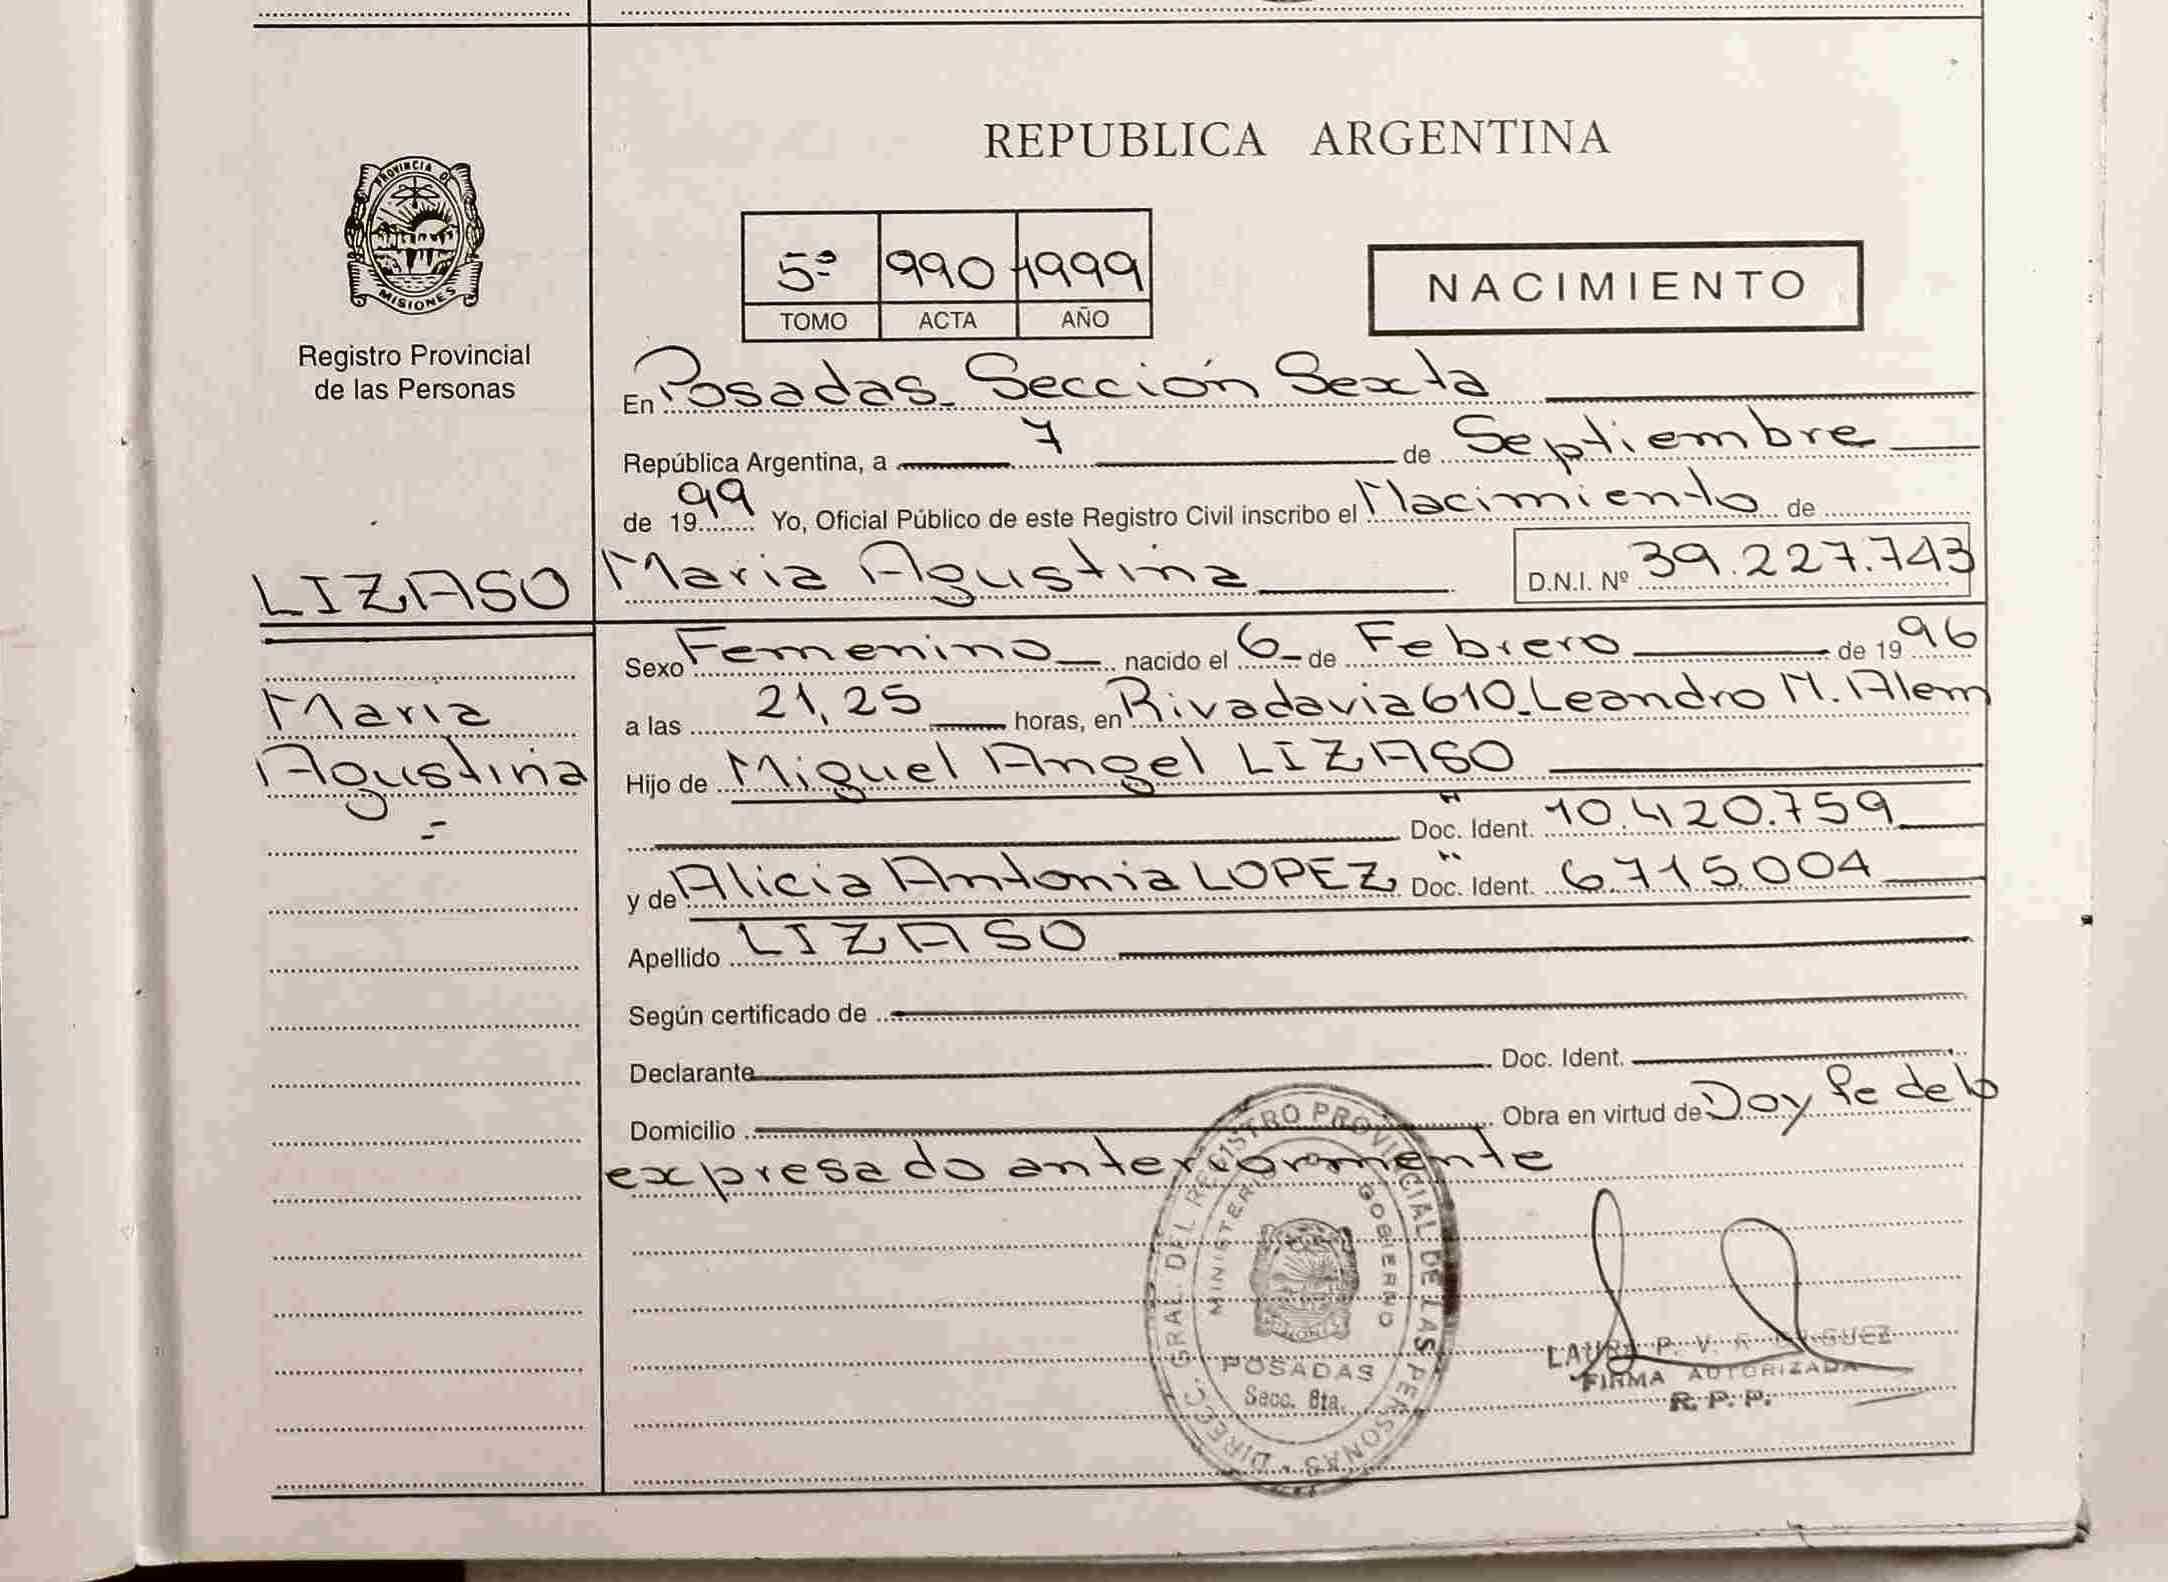 REPUBLICA ARGENTINA
PROVINCIA D
MISIONES
Registro Provincial
de las Personas
5ª 990 1999
TOMO ACTA AÑO
NACIMIENTO
En Posadas. Sección Sexta
República Argentina, a 7 de Septiembre
de 1999 Yo, Oficial Público de este Registro Civil inscribo el Nacimiento de
LIZASO
Maria Agustina D.N.I. Nº 39.227.743
Maria
Agustina
Sexo Femenino nacido el 6 de Febrero de 1996
a las 21,25 horas, en Rivadavia 610. Leandro N. Alem
Hijo de Miguel Angel LIZASO
Doc. Ident. 10.420.759
y de Alicia Antonia LOPEZ Doc. Ident. 6.715.004
Apellido LIZASO
Según certificado de
Declarante Doc. Ident.
Domicilio Obra en virtud de Doy fe de lo
expresado anteriormente
DIRECC. GRAL. DEL REGISTRO PROVINCIAL DE LAS PERSONAS
MINISTERIO GOBIERNO
MISIONES
POSADAS
Secc. 6ta.
LAURA P. V.
FIRMA AUTORIZADA
R. P. P.